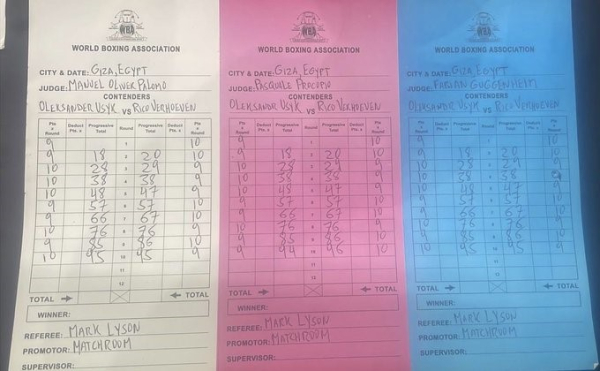 WORLD BOXING ASSOCIATION
CITY & DATE: GIZA, EGYPT
JUDGE: MANUEL OLIVER PALOMO
CONTENDERS
OLEKSANDER USYK VS RICO VERHOEVEN
Pts a Round Deduct Pts. x Progressive Total Round Progressive Total Deduct Pts. x Pts a Round
9 1 10
9 18 2 20 10
10 28 3 29 9
10 38 4 38 9
10 48 5 47 9
9 57 6 57 10
9 66 7 67 10
10 76 8 76 9
9 85 9 86 10
10 95 10 95 9
11
12
TOTAL → ← TOTAL
WINNER:
REFEREE: MARK LYSON
PROMOTOR: MATCHROOM
SUPERVISOR:
WORLD BOXING ASSOCIATION
CITY & DATE: GIZA, EGYPT
JUDGE: PASQUALE PROCOPIO
CONTENDERS
OLEKSANDR USYK VS RICO VERHOEVEN
Pts a Round Deduct Pts. x Progressive Total Round Progressive Total Deduct Pts. x Pts a Round
9 1 10
9 18 2 20 10
10 28 3 29 9
10 38 4 38 9
10 48 5 47 9
9 57 6 57 10
9 66 7 67 10
10 76 8 76 9
9 85 9 86 10
9 94 10 96 10
11
12
TOTAL → ← TOTAL
WINNER:
REFEREE: MARK LYSON
PROMOTOR: MATCHROOM
SUPERVISOR:
WORLD BOXING ASSOCIATION
CITY & DATE: GIZA, EGYPT
JUDGE: GUGGENHEIM
CONTENDERS
USYK VS RICO VERHOEVEN
Pts a Round Deduct Pts. x Progressive Total Round Progressive Total Deduct Pts. x Pts a Round
9 1 10
9 18 2 20 10
10 28 3 29 9
10 38 4 38 9
10 48 5 47 9
9 57 6 57 10
9 66 7 67 10
10 76 8 76 9
9 85 9 86 10
10 95 10 95 9
11
12
TOTAL → ← TOTAL
WINNER:
REFEREE: MARK LYSON
PROMOTOR: MATCHROOM
SUPERVISOR: